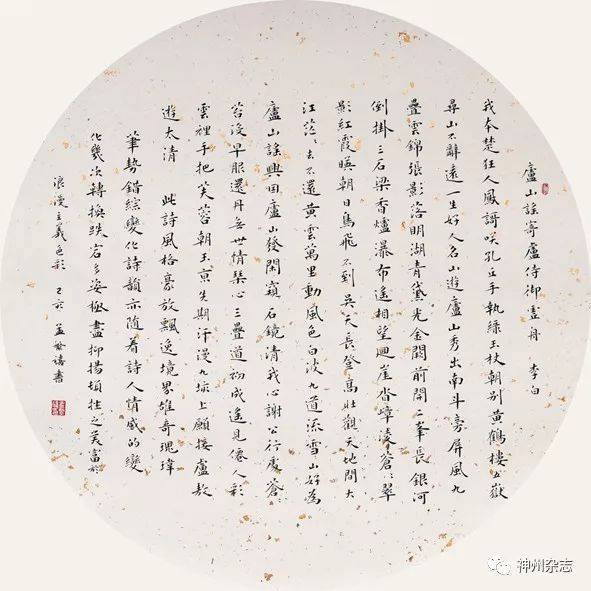 廬山謠寄盧侍御虛舟 李白
我本楚狂人鳳謌咲孔丘手執綠玉杖朝别黄鶴樓五嶽
尋山不辭遠一生好人名山遊廬山秀出南斗旁屏風九
疊雲錦張影落明湖青黛光金闕前開二峯長銀河
倒掛三石梁香爐瀑布遙相望迴崖沓嶂凌蒼〻翠
影紅霞暎朝日鳥飛不到吳天長登高壯觀天地間大
江茫〻去不還黄雲萬里動風色白波九道流雪山好為
廬山謠興因廬山發閑窺石鏡清我心謝公行處蒼
苔沒早服還丹無世情琴心三疊道初成遙見僊人彩
雲裡手把芙蓉朝玉京先期汗漫九垓上願接盧敖
遊太清 此詩風格豪放飄逸境界雄奇瑰瑋
筆勢錯綜變化詩韻亦隨着詩人情感的變
化幾次轉換跌宕多姿極盡抑揚頓挫之美富於
浪漫主義色彩 己亥 孟 書
神州杂志